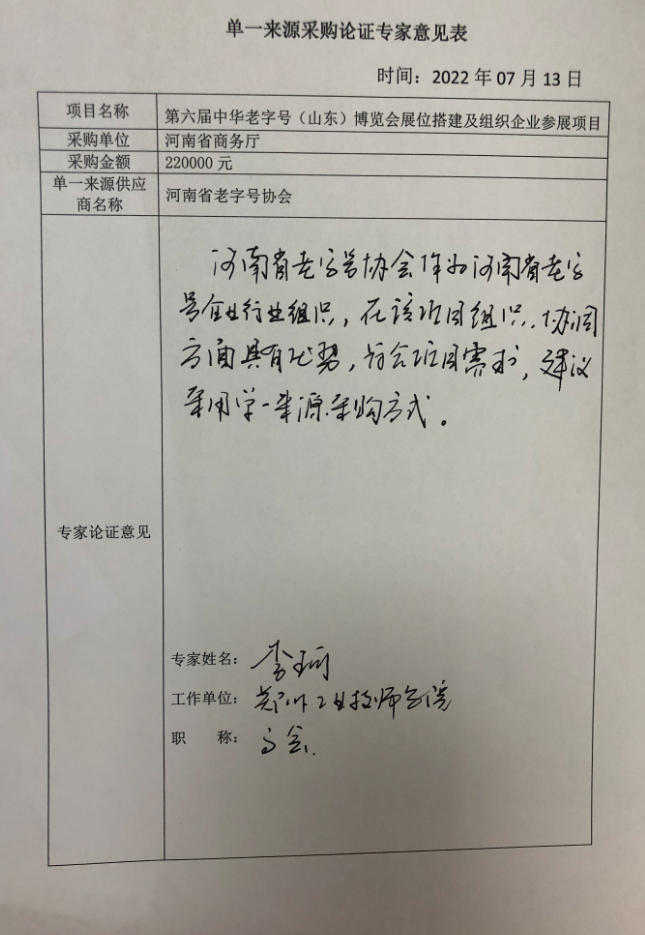 单一来源采购论证专家意见表
时间：2022 年 07 月 13 日
项目名称 第六届中华老字号（山东）博览会展位搭建及组织企业参展项目
采购单位 河南省商务厅
采购金额 220000 元
单一来源供应商名称 河南省老字号协会
专家论证意见
河南省老字号协会作为河南省老字
号企业行业组织，在该项目组织、协调
方面具有优势，符合项目需求，建议
采用单一来源采购方式。
专家姓名：李珂
工作单位：郑州工业技师学院
职 称：高会